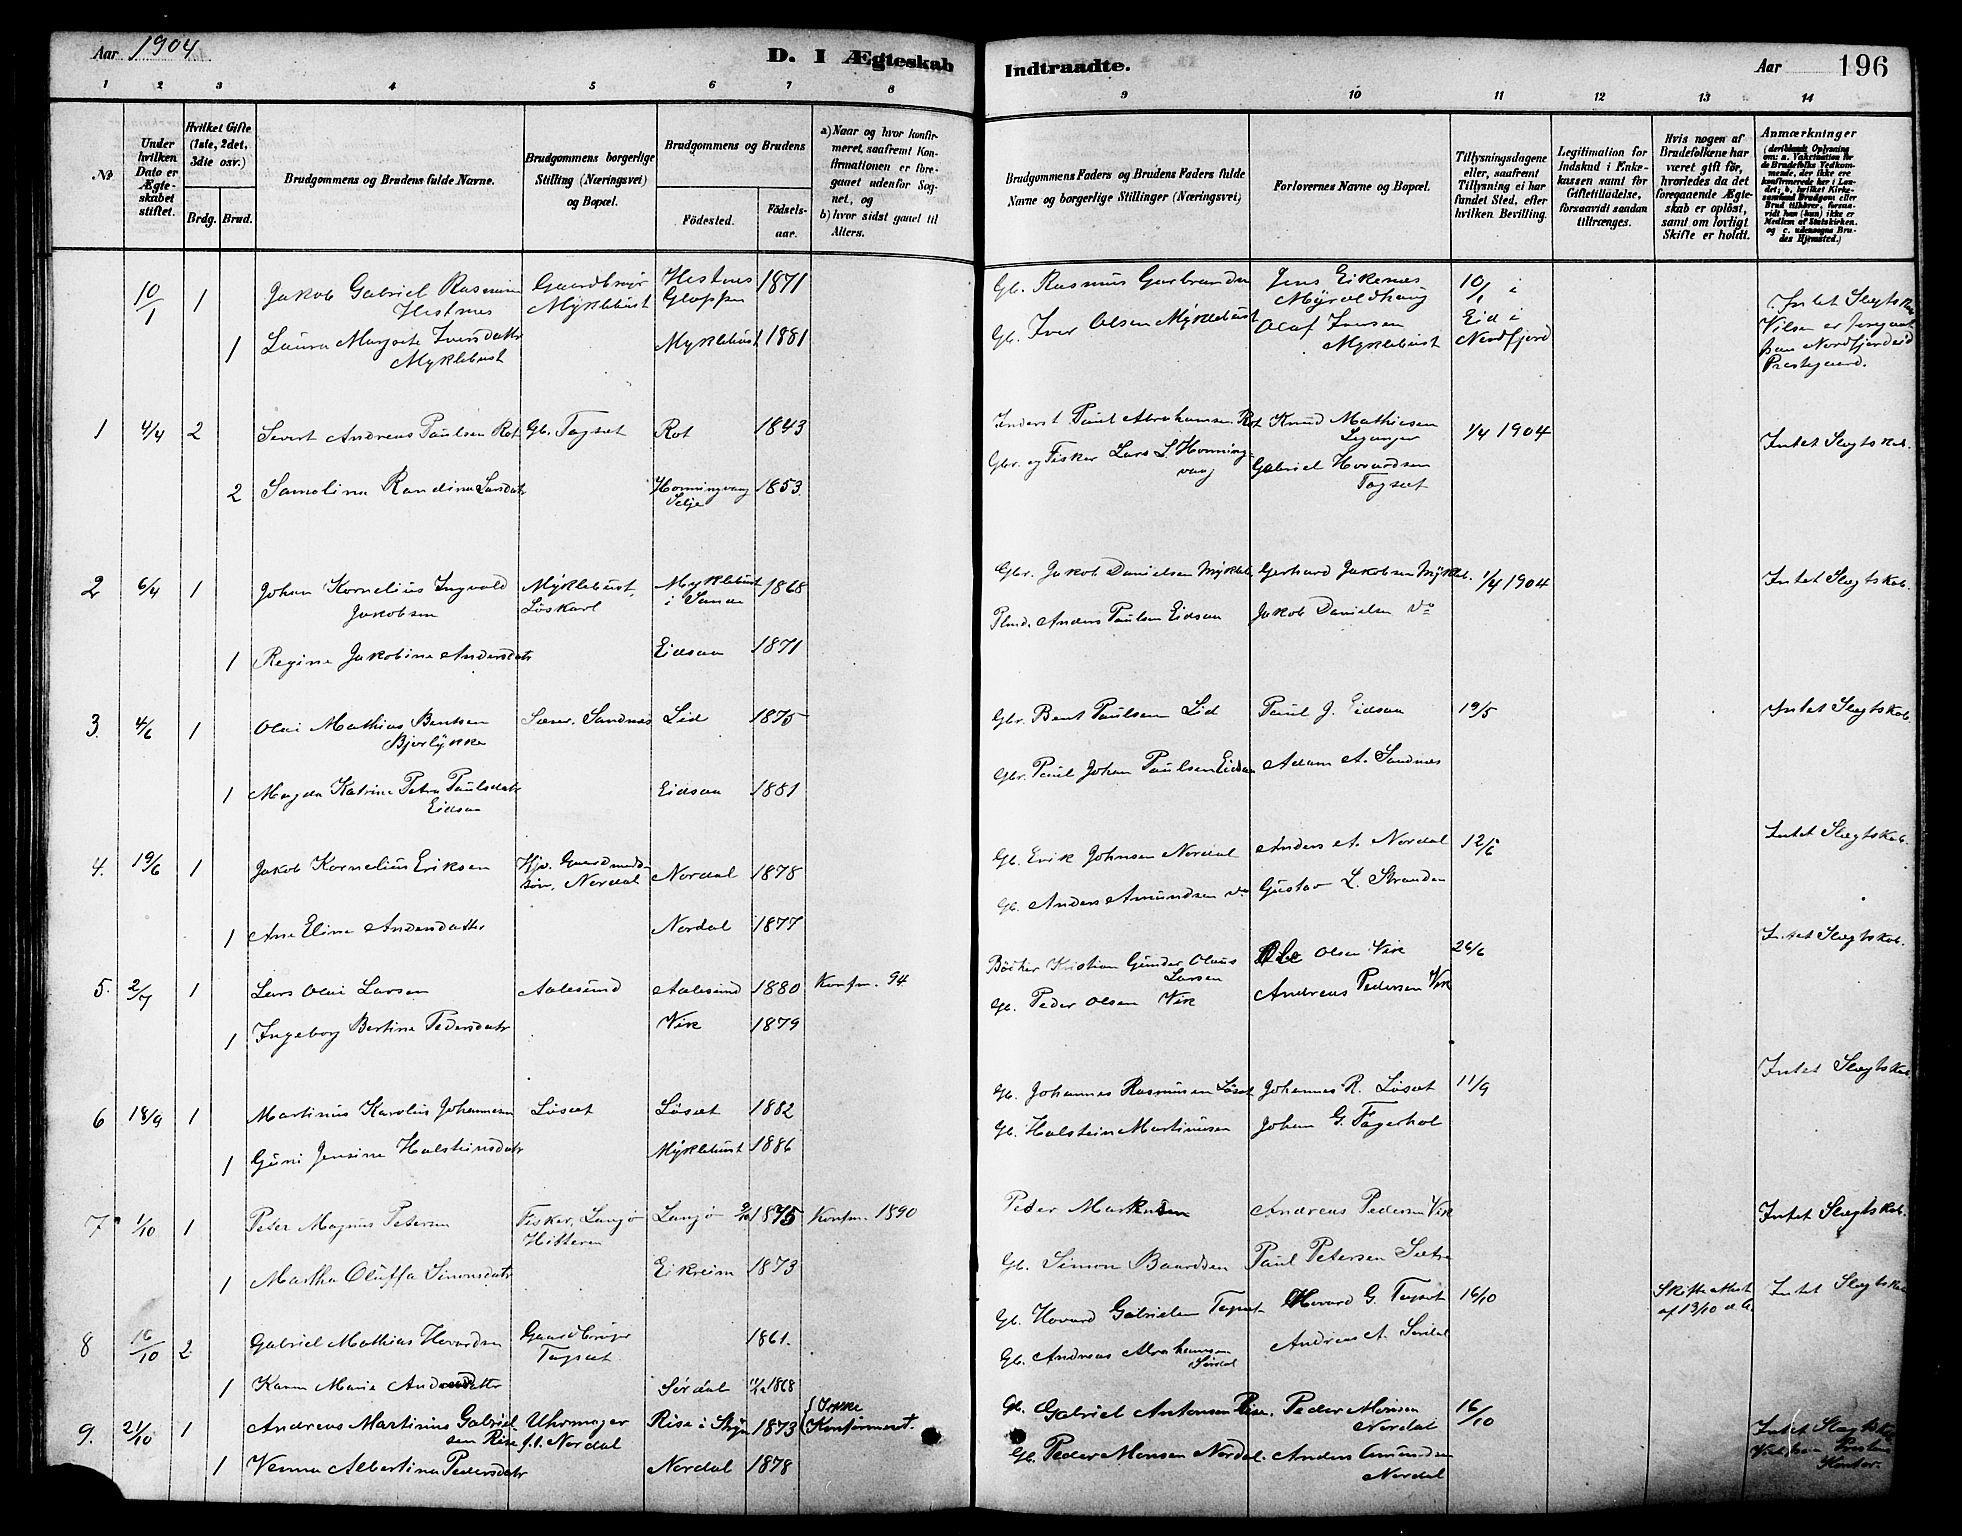 Aar 1904
D. I Ægteskab
Indtraadte.
Aar
196
1 2 3 4 5 6 7 8
9 10 11 12 13 14
No
Under hvilken Dato er Ægteskabet stiftet.
Hvilket Gifte (1ste, 2det, 3die osv.)
Brdg. Brud.
Brudgommens og Brudens fulde Navne.
Brudgommens borgerlige Stilling (Næringsvei) og Bopæl.
Brudgommens og Brudens
Födested.
Födselsaar.
a) Naar og hvor konfirmeret, saafremt Konfirmationen er foregaaet udenfor Sognet, og
b) hvor sidst gaaet til Alters.
Brudgommens Faders og Brudens Faders fulde Navne og borgerlige Stillinger (Næringsvei)
Forlovernes Navne og Bopæl.
Tillysningsdagene eller, saafremt Tillysning ei har fundet Sted, efter hvilken Bevilling.
Legitimation for Indskud i Enkekassen samt for Giftetilladelse, forsaavidt saadan tiltrænges.
Hvis nogen af Brudefolkene har været gift för, hvorledes da det foregaaende Ægteskab er oplöst, samt om lovligt Skifte er holdt.
Anmærkninger
10/1 1 Jakob Gabriel Rasmusen Hestnes Gaardbruger Myklebust Hestnes Gloppen 1871
Gb. Rasmus Gerbrandsen Jens Eikenes Myroldhaug 10/1 i Eid i Nordfjord
1 Laura Margrete Iversdatter Myklebust Myklebust 1881
Gb. Iver Olsen Myklebust Olaf Iversen Myklebust
Intet Slegtskab
Vilsen er foregaat paa Nordfjordeid Prestegaard.
1 4/4 2 Sivert Andreas Paulsen Rot Gb. Tagset Rot 1843
Inderst Paul Abrahamsen Rot Knud Mathiesen Leganger 1/4 1904 Intet Slegtskab.
2 Samoline Randine Larsdatr Honningvaag Selje 1853
Gbr. og Fisker Lars L Honningvaag Gabriel Hovardsen Tagset
2 6/4 1 Johan Kornelius Ingvald Jakobsen Myklebust, Løskarl Myklebust i Sande 1868
Gbr. Jakob Danielsen Mykleb. Gerhard Jakobsen Mykleb. 1/4 1904 Intet Slegtskab.
1 Regine Jakobine Andersdatr Eidsaa 1871
Plmd. Anders Paulsen Eidsaa Jakob Danielsen do
3. 4/6 1 Olai Mathias Bentsen Bjørlykke Sandnes Lid 1875
Gbr. Bent Paulsen Lid Paul J. Eidsaa 19/5 Intet Slegtskab.
1 Magda Katrine Petra Paulsdatr Eidsaa Eidsaa 1881
Gbr. Paul Johan Paulsen Eidsaa Adam A. Sandnes
4. 19/6 1 Jakob Kornelius Eriksen Gaardmands søn, Nordal Nordal 1878
Gb. Erik Johnsen Nordal Anders A. Nordal 12/6 Intet Slegtskab.
1 Ane Eline Andersdatter Nordal 1877
Gb. Anders Amundsen do Gustav L. Stranden
5. 2/7 1 Lars Olai Larsen Aalesund Aalesund 1880 Konfm. 94
Bøcker Kristian Gunder Olaus Larsen Ole Olsen Vik 26/6 Intet Slegtskab.
1 Ingeborg Bertine Pedersdatr Vik 1879
Gb. Peder Olsen Vik Andreas Pedersen Vik
6 18/9 1 Martinus Karolus Johannesen Løset Løset 1882
Gb. Johannes Rasmusen Løset Johannes R. Løset 11/9 Intet Slegtskab
1 Guri Jensine Halsteinsdatr Myklebust 1886
Gb. Halstein Martinusen Johan G. Fagerhol
7 1/10 1 Peter Magnus Petersen Fisker, Langø Hitteren Langø 1875 Konfm. 1890
Peder Markusen Andreas Pedersen Vik Intet Slegtskab.
1 Martha Oluffa Simonsdatr Eikreim 1873
Gb. Simon Baardsen Paul Petersen Sætre
8 16/10 2 Gabriel Mathias Hovardsen Gaardbruger Tagset 1861.
Gb. Hovard Gabrielsen Tagset Hovard G. Tagset 16/10 Skifteattest af 13/10 d.A. Intet Slegtskab
1 Karen Marie Andreasdatter Sørdal 1868
Gb. Andreas Abrahamsen Sørdal Andreas A. Sørdal
9. 21/10 1 Andreas Martinus Gabrielsen Rise Uhrmager f.t. Nordal Rise i Stryn 1873 Ikke Konfirmeret.
Gb. Gabriel Antonsen Rise. Peder Monsen Nordal 16/10
1 Venna Albertine Pedersdatr Nordal 1878
Gb. Peder Monsen Nordal. Anders Amundsen Nordal
Intet Slegtskab
Kontor.